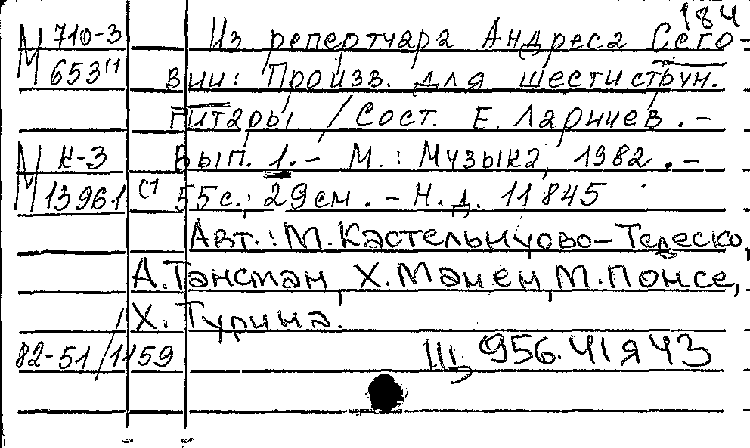 184
М 710-3 Из репертуара Андреса Сего-
М 653(1 вии: Произв. для шестиструн.
гитары / Сост. Е. Ларичев. -
М Н-3 Вып. 1. - М.: Музыка, 1982. -
М 13961 (1 55с.; 29см. - Н.д. 11845
Авт.: М. Кастельнуово-Тедеско,
А. Тансман, Х. Манен, М. Понсе,
Х. Турина.
82-51/1159 Щ 956.41я43